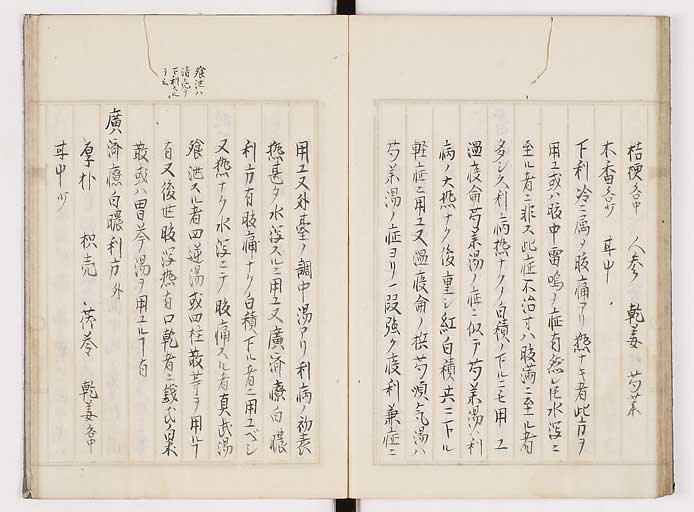 桔梗各中 人参 乾姜 芍薬
木香各少 甘中
下利冷ニ属ヲ腹痛アリ熱ナキ者此方ヲ
用ユ或ハ腹中雷鳴ノ症有然レ圧水瀉ニ
至ル者ニ非ス此症不治寸ハ腹満ニ至ル者
多シ久利病熱ナク白積ノ下ルニモ用ユ
温疫侖芍薬湯ノ症ニ似テ芍薬湯ハ利
病ノ大熱ナク後重シ紅白積共ニ下ル
軽症ニ用ユ又温疫侖ノ梹芍順气湯ハ
芍薬湯ノ症ヨリ一段強ク疫利兼症ニ
用ユ又外臺ノ調中湯アリ利病ノ初表
熱甚タ水瀉スルニ用ユ又廣済療白膿
利方有腹痛ナク白積下ル者ニ用ユベシ
又熱ナク水瀉ニテ腹痛スル者真武湯
飧泄スル者四逆湯或四柱散等ヲ用ル
有又後世腹瀉熱有口乾者ニ銭氏
散或ハ胃苓湯ヲ用ユルヿ有
廣済療白膿利方 外
厚朴 枳売 茯苓 乾姜各中
甘中少
飧泄ハ
清穀ヲ
下利スル
ヲ云